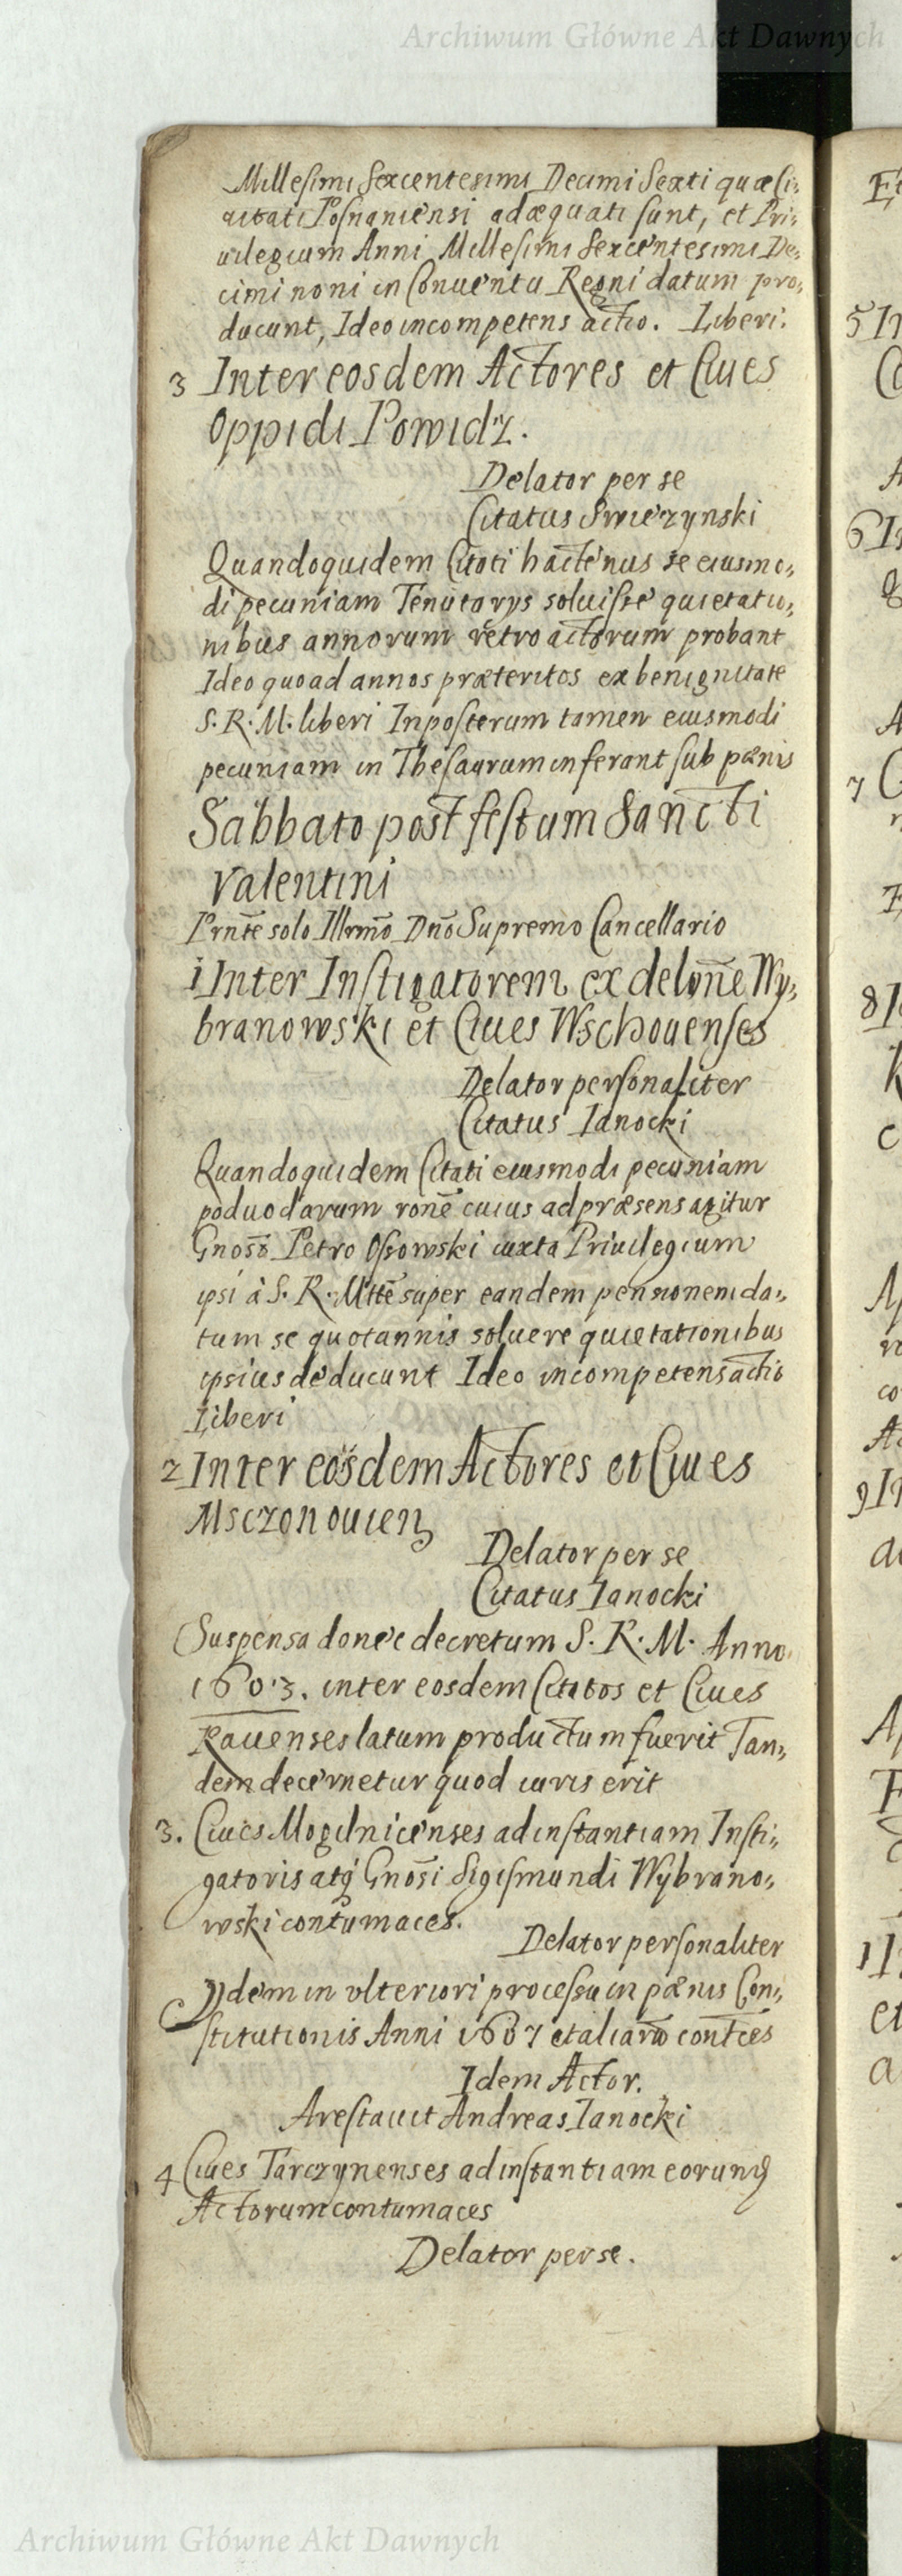 Archiwum Główne Akt Dawnych
Millesimi Sexcentesimi Decimi Sexti quæ Ci-
uitati Posnaniensi adæquati sunt, et Pri-
uilegium Anni Millesimi Sexcentesimi De-
cimi noni in Conuentu Regni datum pro-
ducunt, Ideo incompetens actio. Liberi.
3 Inter eosdem Actores et Ciues
Oppidi Powidz.
Delator per se
Citatus Swierzynski
Quandoquidem Citati hactenus se eiusmo-
di pecuniam Tenutarys soluisse quietatio-
nibus annorum retroactorum probant
Ideo quoad annos præteritos ex benignitate
S. R. M. liberi Inposterum tamen eiusmodi
pecuniam in Thesaurum inferant sub pænis
Sabbato post festum Sancti
Valentini
Prnte solo Illrmo Dno Supremo Cancellario
1 Inter Instigatorem ex delone Wy-
branowski et Ciues Wschouenses
Delator personaliter
Citatus Ianocki
Quandoquidem Citati eiusmodi pecuniam
poduodarum rone cuius ad præsens agitur
Gnoso Petro Ossowski iuxta Priuilegium
ipsi à S. R. Mtte super eandem pennonem da-
tum se quotannis soluere quietationibus
ipsius deducunt Ideo incompetens actio
Liberi
2 Inter eosdem Actores et Ciues
Msczonouien
Delator per se
Citatus Ianocki
Suspensa donec decretum S. R. M. Anno
1603. inter eosdem Citatos et Ciues
Rauenses latum productum fuerit Tan-
dem decernetur quod iuris erit
3. Ciues Mogilnicenses ad instantiam Insti-
gatoris atq Gnosi Sigismundi Wybrano-
wski contumaces.
Delator personaliter
Ydem in vlteriori processu in pænis Con-
stitutionis Anni 1607 et aliaru contces
Idem Actor.
Arestauit Andreas Ianocki
4 Ciues Tarczynenses ad instantiam eorund
Actorum contumaces
Delator per se.
Archiwum Główne Akt Dawnych